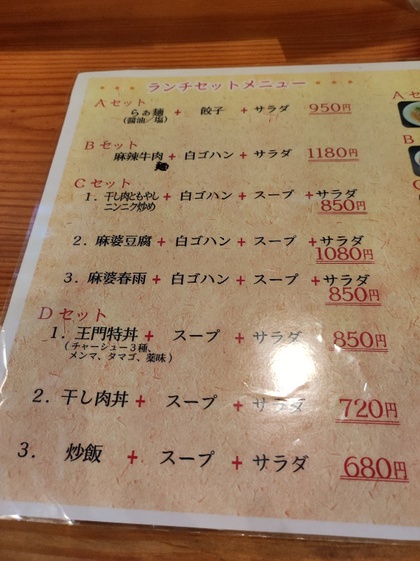 ランチセットメニュー
Aセット
らぁ麺 + 餃子 + サラダ 950円
(醤油/塩)
Bセット
麻辣牛肉 + 白ゴハン + サラダ 1180円
麺
Cセット
1. 干し肉ともやし + 白ゴハン + スープ +サラダ
ニンニク炒め 850円
2. 麻婆豆腐 + 白ゴハン + スープ +サラダ
1080円
3. 麻婆春雨 + 白ゴハン + スープ +サラダ
850円
Dセット
1. 王門特丼+ スープ + サラダ 850円
(チャーシュー3種、
メンマ、タマゴ、薬味)
2. 干し肉丼+ スープ + サラダ 720円
3. 炒飯 + スープ + サラダ 680円
A
B